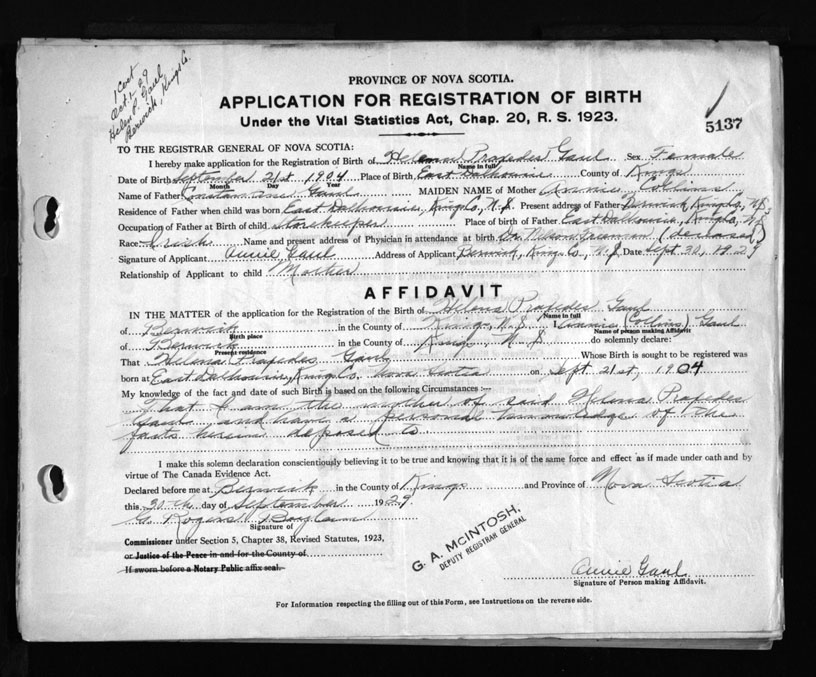 1 Cert
Oct 1 - 29
Helen P. Gaul
Berwick, Kings Co.
PROVINCE OF NOVA SCOTIA.
APPLICATION FOR REGISTRATION OF BIRTH
Under the Vital Statistics Act, Chap. 20, R. S. 1923.
5137
TO THE REGISTRAR GENERAL OF NOVA SCOTIA:
I hereby make application for the Registration of Birth of Helena Praxedes Gaul Sex Female
Name in full
Date of Birth September 21st 1904 Place of Birth East Dalhousie County of Kings
Month Day Year
Name of Father Gaul MAIDEN NAME of Mother Annie Collins
Residence of Father when child was born East Dalhousie, Kings Co, N.S. Present address of Father Berwick, Kings Co, N.S.
Occupation of Father at Birth of child Storekeeper Place of birth of Father East Dalhousie, Kings Co, N.S.
Race: Irish Name and present address of Physician in attendance at birth Dr. Nelson Freeman (deceased)
Signature of Applicant Annie Gaul Address of Applicant Berwick, Kings Co., N.S. Date Sept 30, 1929
Relationship of Applicant to child Mother
AFFIDAVIT
IN THE MATTER of the application for the Registration of the Birth of Helena Praxedes Gaul
Name in full
of Berwick in the County of Kings, N.S. I, Annie (Collins) Gaul
Birth place Name of person making Affidavit
of Berwick in the County of Kings, N.S. do solemnly declare:
Present residence
That Helena Praxedes Gaul Whose Birth is sought to be registered was
born at East Dalhousie, Kings Co. Nova Scotia on Sept 21st, 1904
My knowledge of the fact and date of such Birth is based on the following Circumstances :—
That I am the mother of said Helena Praxedes
Gaul and have a personal knowledge of the
facts herein deposed to
I make this solemn declaration conscientiously believing it to be true and knowing that it is of the same force and effect as if made under oath and by
virtue of The Canada Evidence Act.
Declared before me at Berwick in the County of Kings and Province of Nova Scotia
this 30th day of September 1929
G. Rogers
Signature of
Commissioner under Section 5, Chapter 38, Revised Statutes, 1923,
or Justice of the Peace in and for the County of
If sworn before a Notary Public affix seal.
G. A. McINTOSH,
DEPUTY REGISTRAR GENERAL
Annie Gaul
Signature of Person making Affidavit.
For Information respecting the filling out of this Form, see Instructions on the reverse side.